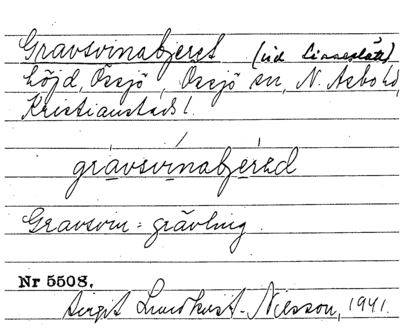 Gravsvinabjeret (vid Linneslätt)
höjd, Össjö, Össjö sn, N. Asbo hd,
Kristianstads l.
grávsvínabjérəd
Gravsvin = grävling.
Nr 5508.
Birgit Lundkvist-Nilsson, 1941.